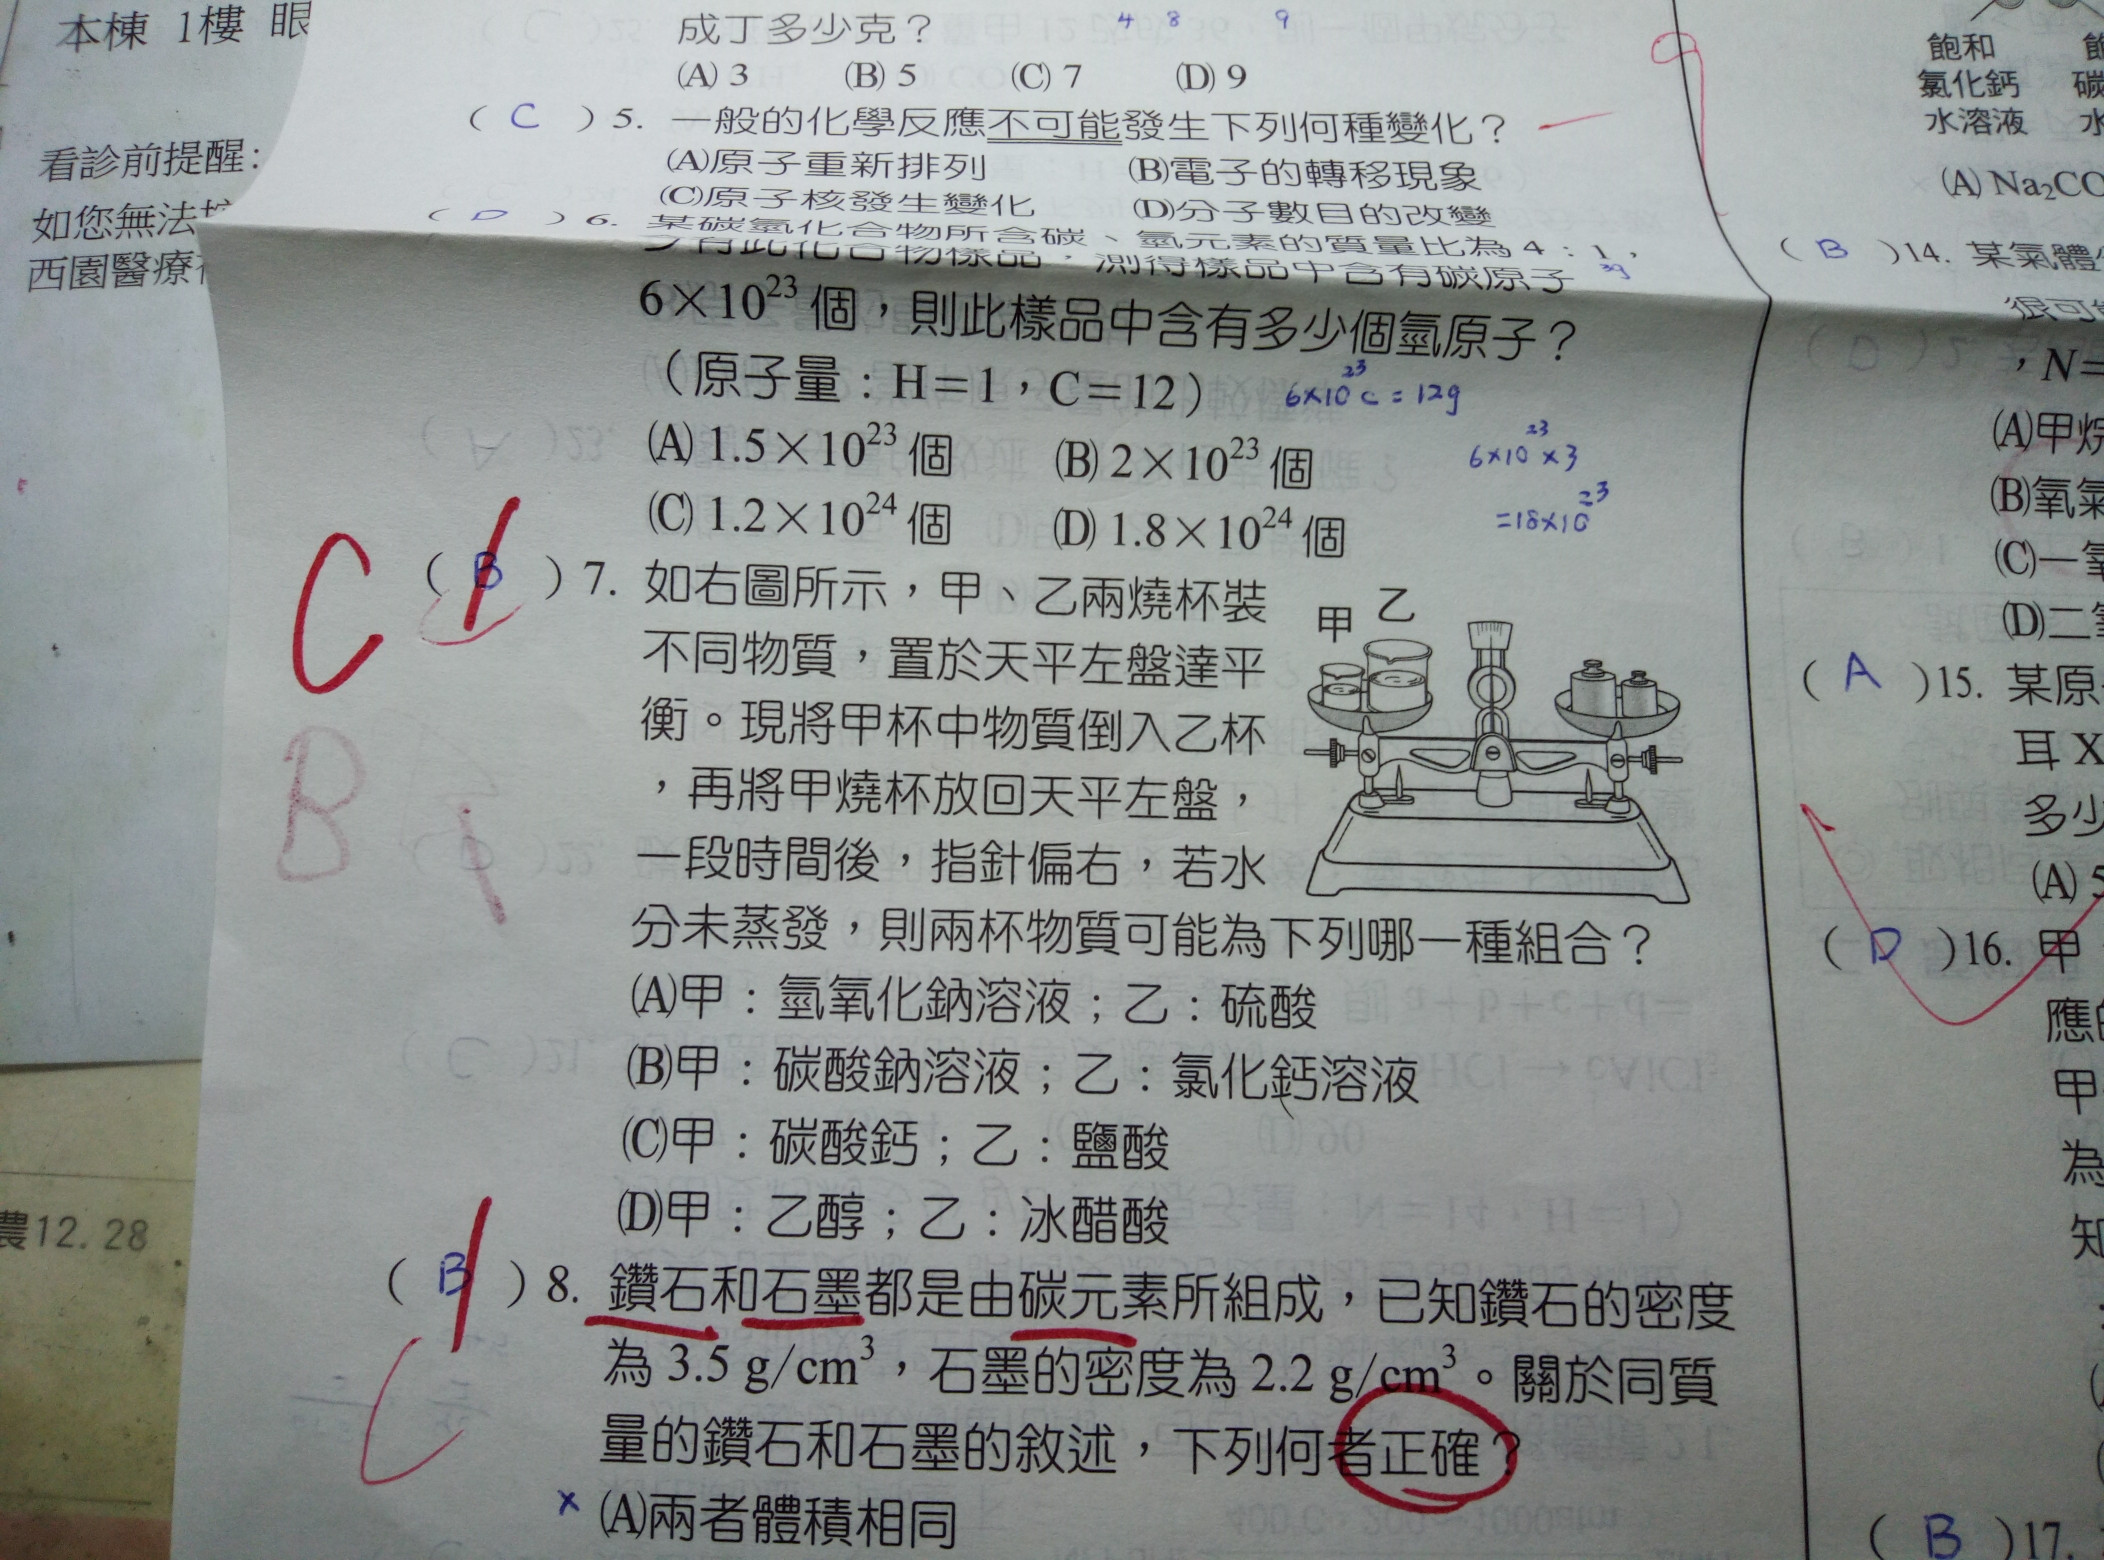 本棟 1樓 眼
看診前提醒:
如您無法
西園醫療
農12.28
成丁多少克？
4 8 9
(A) 3 (B) 5 (C) 7 (D) 9
( C ) 5. 一般的化學反應不可能發生下列何種變化？
(A)原子重新排列 (B)電子的轉移現象
(C)原子核發生變化 (D)分子數目的改變
( D ) 6. 某碳氫化合物所含碳、氫元素的質量比為 4：1，
有此化合物樣品，測得樣品中含有碳原子
6×10²³ 個，則此樣品中含有多少個氫原子？
（原子量：H＝1，C＝12）
6×10²³ C = 12g
(A) 1.5×10²³ 個 (B) 2×10²³ 個
6×10²³ ×3
(C) 1.2×10²⁴ 個 (D) 1.8×10²⁴ 個
=18×10²³
C
B
( B ) 7. 如右圖所示，甲、乙兩燒杯裝
不同物質，置於天平左盤達平
衡。現將甲杯中物質倒入乙杯
，再將甲燒杯放回天平左盤，
一段時間後，指針偏右，若水
分未蒸發，則兩杯物質可能為下列哪一種組合？
甲 乙
(A)甲：氫氧化鈉溶液；乙：硫酸
(B)甲：碳酸鈉溶液；乙：氯化鈣溶液
(C)甲：碳酸鈣；乙：鹽酸
(D)甲：乙醇；乙：冰醋酸
( B ) 8. 鑽石和石墨都是由碳元素所組成，已知鑽石的密度
為 3.5 g/cm³，石墨的密度為 2.2 g/cm³。關於同質
量的鑽石和石墨的敘述，下列何者正確？
C
× (A)兩者體積相同
飽和
氯化鈣
水溶液
(A) Na₂CO
( B )14. 某氣體
很可
，N＝
(A)甲烷
(B)氧氣
(C)一氧
(D)二氧
( A )15. 某原
耳 X
多少
(A) 5
( D )16. 甲
應的
甲
為
知
( B )17.